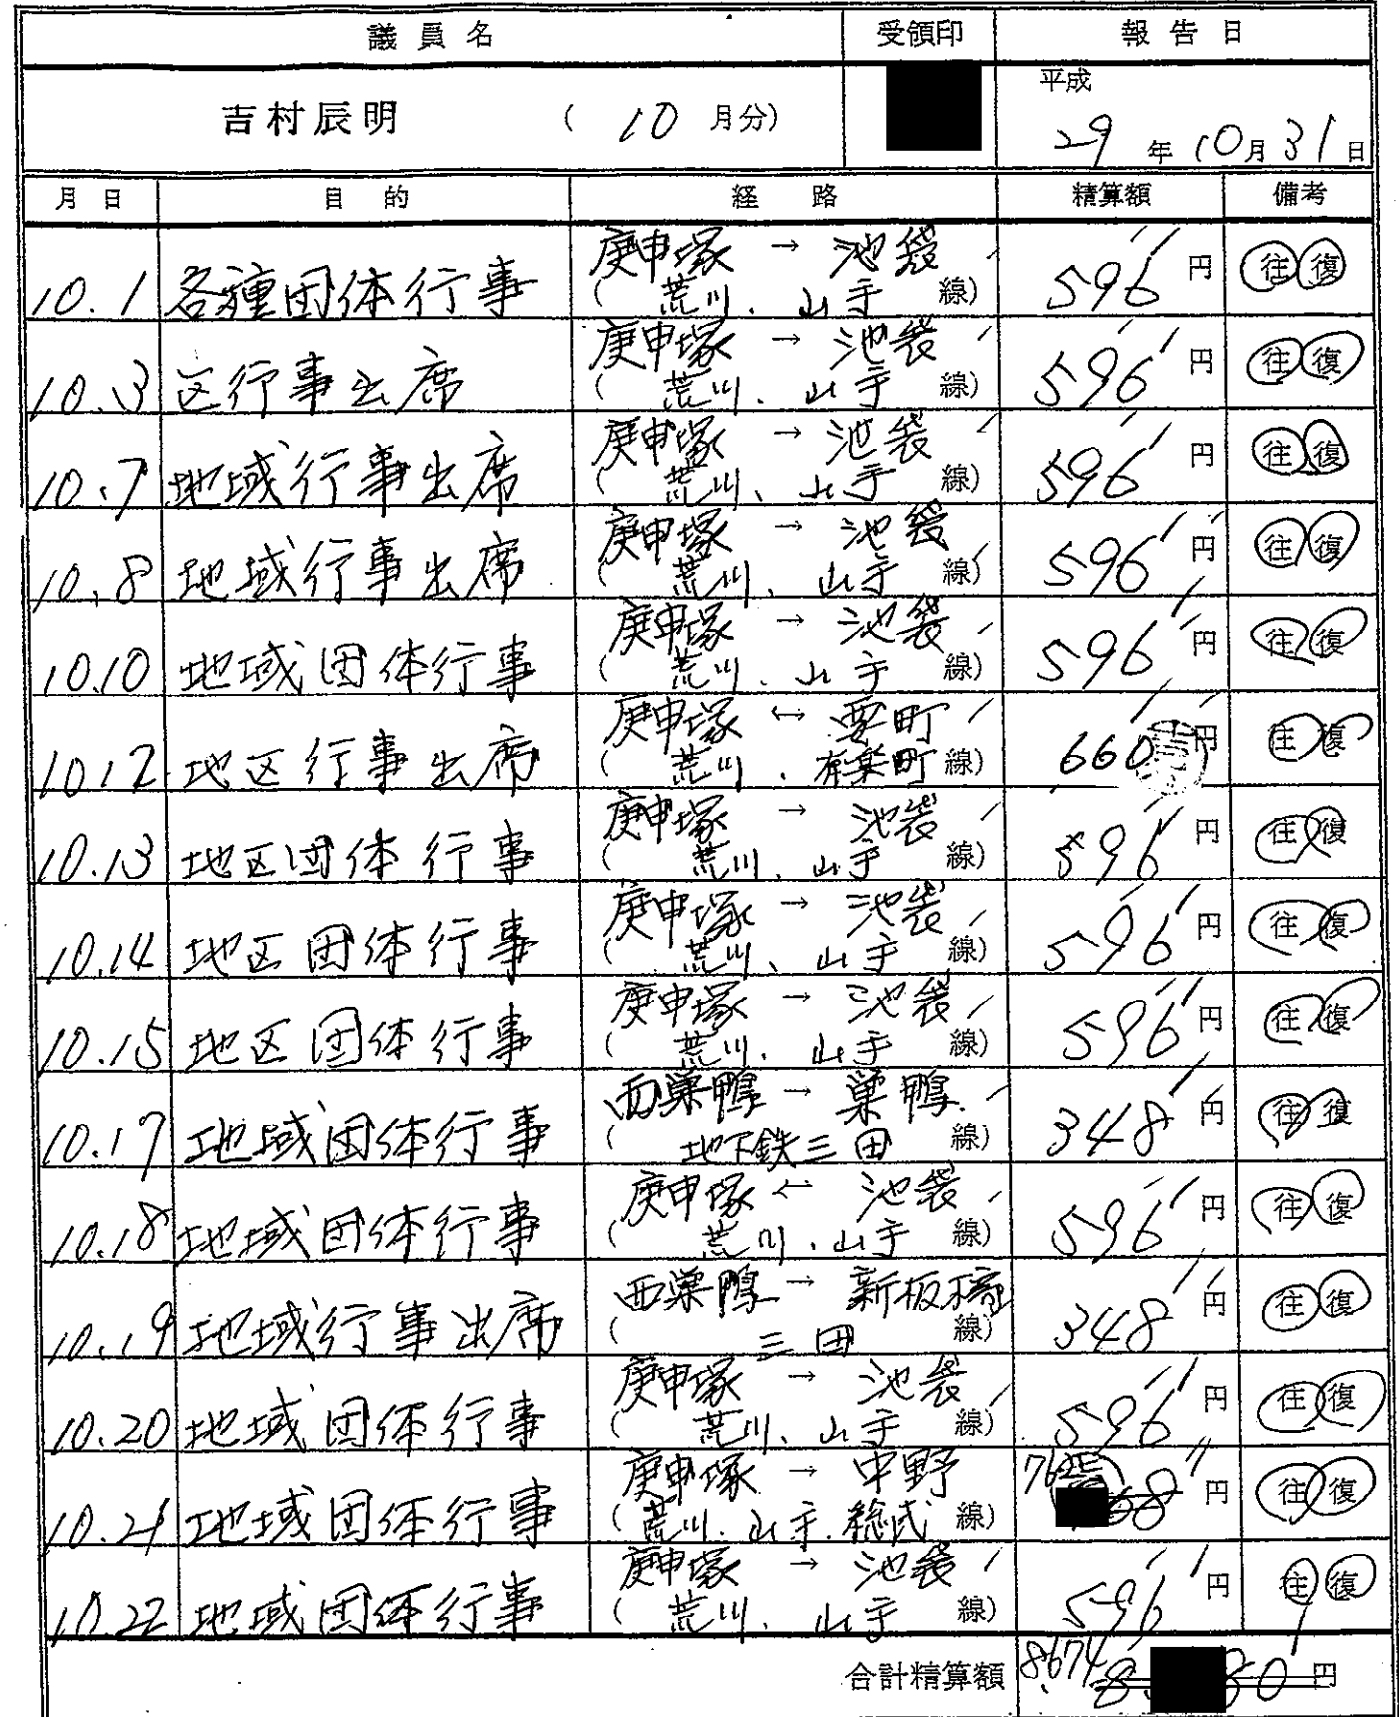 議員名 受領印 報告日
吉村辰明 ( 10 月分) 平成 29 年 10 月 31 日
月日 目的 経路 精算額 備考
10.1 各種団体行事 庚申塚 → 池袋 ( 荒川、山手 線) 596 円 往 復
10.3 区行事出席 庚申塚 → 池袋 ( 荒川、山手 線) 596 円 往 復
10.7 地域行事出席 庚申塚 → 池袋 ( 荒川、山手 線) 596 円 往 復
10.8 地域行事出席 庚申塚 → 池袋 ( 荒川、山手 線) 596 円 往 復
10.10 地域団体行事 庚申塚 → 池袋 ( 荒川、山手 線) 596 円 往 復
10.12 地区行事出席 庚申塚 ↔ 要町 ( 荒川、有楽町 線) 660 円 往 復
10.13 地区団体行事 庚申塚 → 池袋 ( 荒川、山手 線) 596 円 往 復
10.14 地区団体行事 庚申塚 → 池袋 ( 荒川、山手 線) 596 円 往 復
10.15 地区団体行事 庚申塚 → 池袋 ( 荒川、山手 線) 596 円 往 復
10.17 地域団体行事 西巣鴨 → 巣鴨 ( 地下鉄三田 線) 348 円 往 復
10.18 地域団体行事 庚申塚 ↔ 池袋 ( 荒川、山手 線) 596 円 往 復
10.19 地域行事出席 西巣鴨 → 新板橋 ( 三田 線) 348 円 往 復
10.20 地域団体行事 庚申塚 → 池袋 ( 荒川、山手 線) 596 円 往 復
10.21 地域団体行事 庚申塚 → 中野 ( 荒川、山手、総武 線) 円 往 復
10.22 地域団体行事 庚申塚 → 池袋 ( 荒川、山手 線) 596 円 往 復
合計精算額 8,674 円